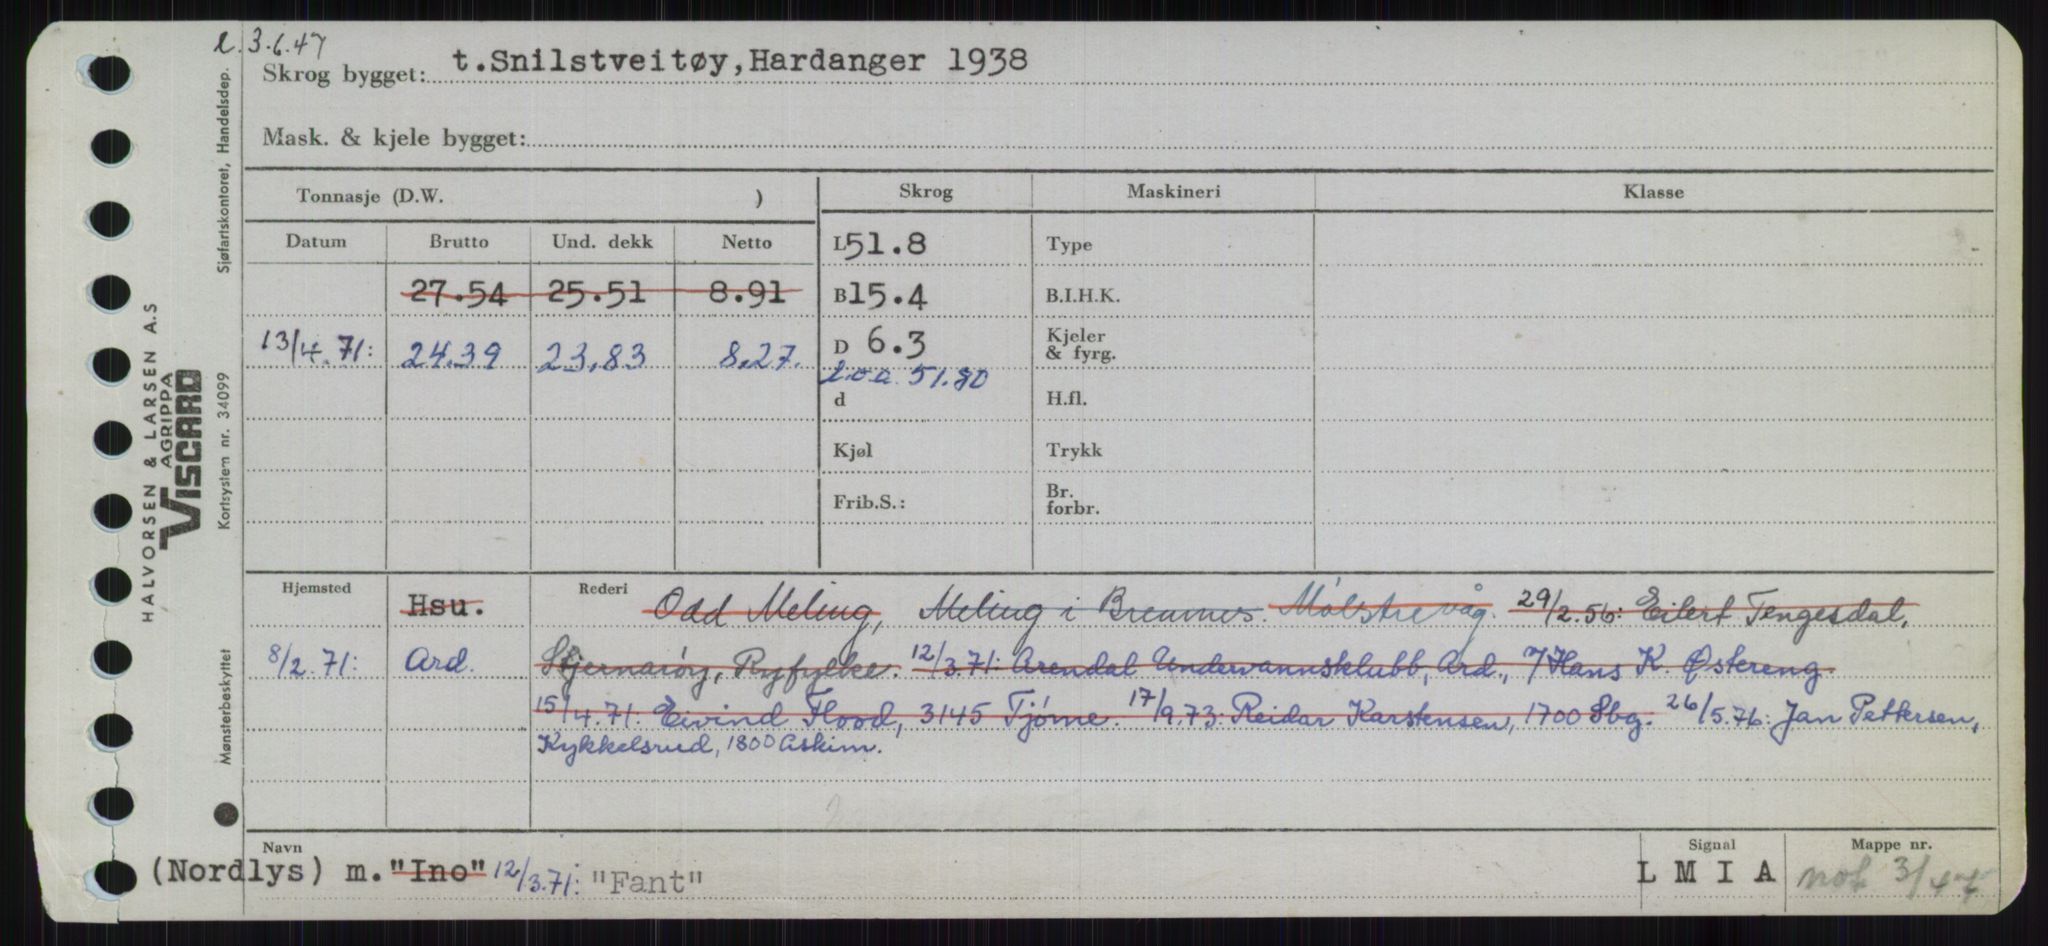 3.6.47
Skrog bygget: t.Snilstveitøy,Hardanger 1938
Mask. & kjele bygget:
Tonnasje (D.W. ) Skrog Maskineri Klasse
Datum Brutto Und. dekk Netto L51.8 Type
27.54 25.51 8.91 B15.4 B.I.H.K.
13/4.71: 24.39 23,83 8,27. D 6.3 Kjeler & fyrg.
l.o.a. 51.80
d H.fl.
Kjøl Trykk
Frib.S.: Br. forbr.
Hjemsted Hsu. Rederi Odd Meling, Meling i Bremnes. Mølstrevåg. 29/2.56: Eilert Tengesdal,
8/2.71: Ard. Stjernarøy, Ryfylke. 12/3.71: Arendal Undervannsklubb, Ard., v/Hans K. Østereng
15/4.71: Eivind Flood, 3145 Tjøme. 17/9.73: Reidar Karstensen, 1700 Sbg. 26/5.76: Jan Pettersen,
Kykkelsrud, 1800 Askim.
Navn Signal Mappe nr.
(Nordlys) m. "Ino" 12/3.71: "Fant" L M I A not 3/47
Sjøfartskontoret, Handelsdep.
Kortsystem nr. 34099
Mønsterbeskyttet
HALVORSEN & LARSEN A.S
AGRIPPA
VISCARD